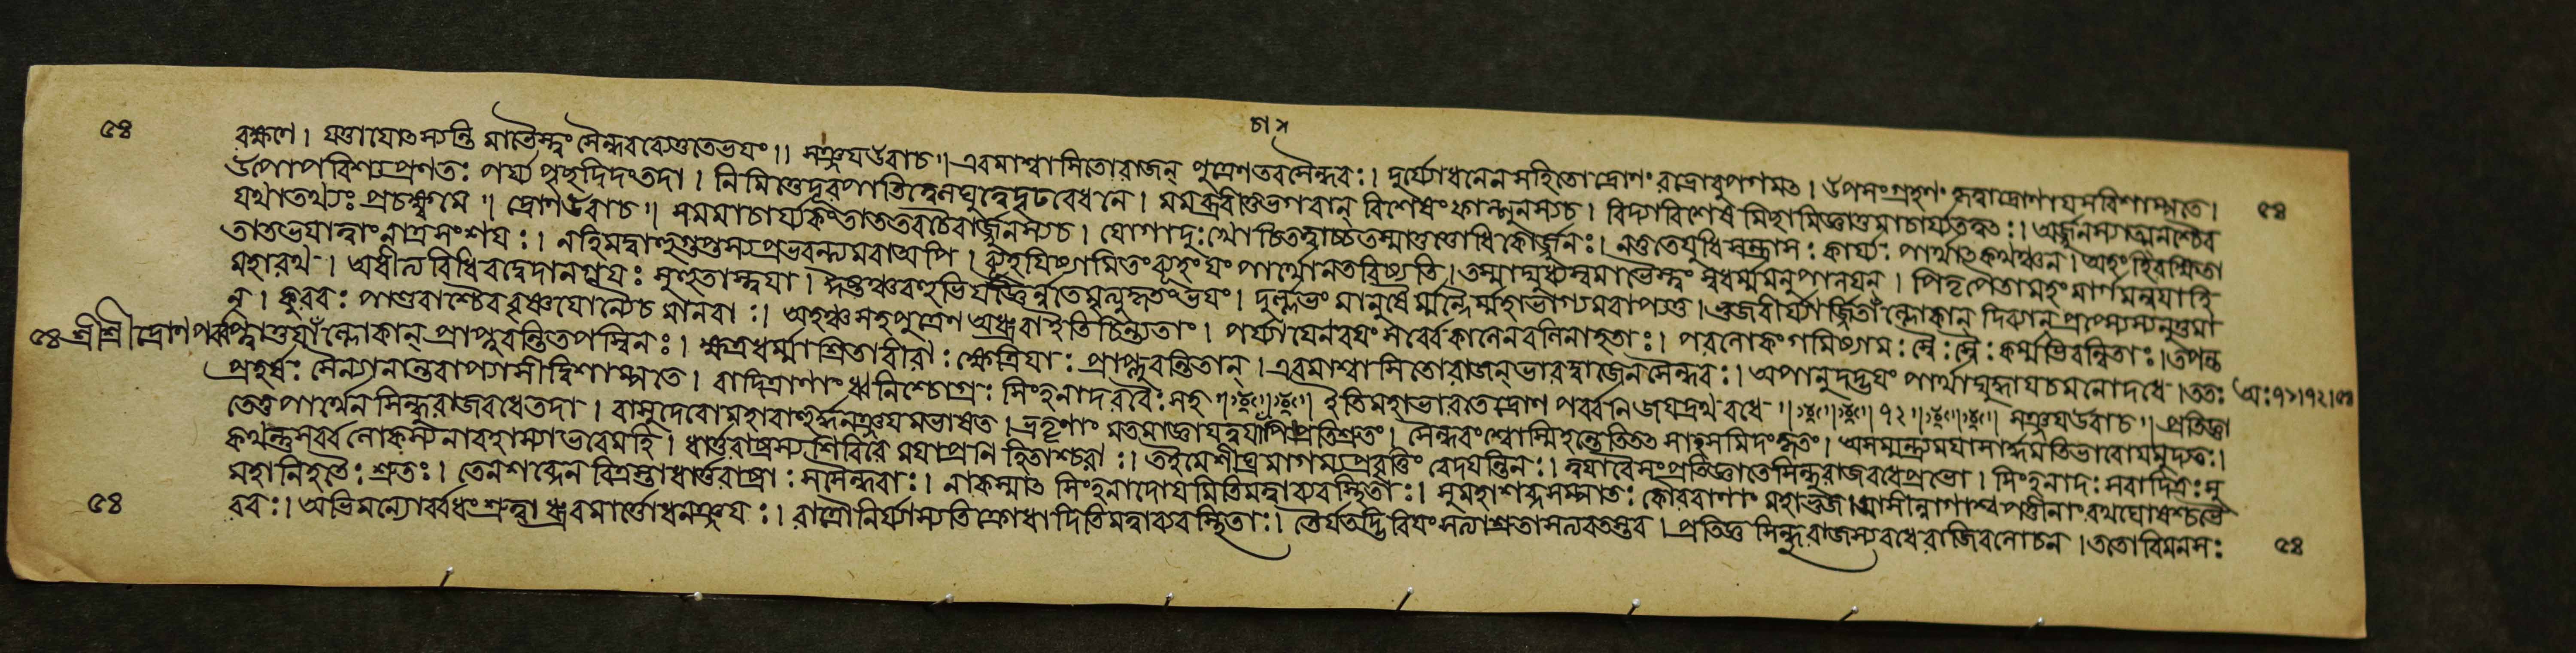 ৫৪
বক্ষণে। যত্তাযোত্স্যন্তি মাভৈস্ত্বং সৈন্ধবব্যেতুতেভযং॥ সঞ্জযউবাচ॥ এবমাশ্বাসিতোরাজন্ পুত্রেণতবসৈন্ধবঃ। দুর্য্যোধনেনসহিতোদ্রোণং রাত্রোবুপাগমত্। উপসংগ্রহণং কৃত্বাদ্রোণাযসবিশাম্পতে।
উপোপবিশ্যপ্রণতঃ পর্য্যপৃছদিদংতদা। নিমিত্তেদূরপাতিত্বেলঘুত্বেদৃঢবেধনে। মমব্রবীতুভগবান্ বিশেষংফাল্গুনস্যচ। বিদ্যাবিশেষমিছামিজ্ঞাতুমাচার্য্যতত্ত্বতঃ। অর্জ্জুনস্যাত্মনশ্চৈব
যথাতথ্যঃ প্রচক্ষ্বমে॥ দ্রোণউবাচ॥ সমমাচার্য্যকংতাততবচৈবার্জ্জুনস্যচ। যোগাদুঃখোচিতত্বাচ্চতস্মাত্তত্তোধিকোর্জ্জুনঃ। নতুতেযুধিসন্ত্রাসঃ কার্য্যঃ পার্থাত্কথঞ্চন। অহংহিরক্ষিতা
তাতভযাত্ত্বাংনাত্রসংশযঃ। নহিমদ্বাহুগুপ্তস্যপ্রভবন্ত্যমরাঅপি। ব্যূহযিষ্যামিতংব্যূহং যং পার্থোনতরিষ্যতি। তস্মাদ্যুধ্যস্বমাভৈস্ত্বং স্বধর্ম্মমনুপালযন্। পিতৃপৈতামহংমার্গমনুযাহি
মহারথ। অধীত্যবিধিবদ্বেদানগ্নযঃ সুহুতাস্ত্বযা। ইষ্টঞ্চবহুভির্যজ্ঞৈর্নতেমৃত্যুকৃতংভযং। দুর্ল্লভং মানুষৈর্ম্মন্দৈর্ম্মহাভাগ্যমবাপ্যতু। ভুজবীর্য্যার্জ্জিতাঁল্লোকান্ দিব্যান্প্রাপ্স্যস্যনুত্তমা
ন্। কুরবঃ পাণ্ডবাশ্চৈববৃষ্ণযোন্যেচমানবাঃ। অহঞ্চসহপুত্রেণঅধ্রুবাইতিচিন্ত্যতাং। পর্য্যাযেনবযংসর্ব্বেকালেনবলিনাহতাঃ। পরলোকংগমিষ্যামঃস্বৈঃস্বৈঃকর্ম্মভিরন্বিতাঃ। তপস্ত
৫৪ শ্রীশ্রীদ্রোণপর্ব্ব
প্ত্বাতুযাঁল্লোকান্ প্রাপ্নুবন্তিতপস্বিনঃ। ক্ষত্রধর্ম্মাশ্রিতাবীরাঃ ক্ষেত্রিযাঃ প্রাপ্নুবন্তিতান্। এবমাশ্বাসিতোরাজন্ভারদ্বাজেনসৈন্ধবঃ। অপানুদদ্ভযং পার্থাদ্যুদ্ধাযচমনোদধে। ততঃ
অঃ৭১।৭২।৫৪
প্রহর্ষঃ সৈন্যানান্তবাপ্যাসীদ্বিশাম্পতে। বাদিত্রাণাংধ্বনিশ্চোগ্রঃ সিংহনাদরবৈঃ সহ॥ ইতিমহাভারতেদ্রোণপর্ব্বনিজযদ্রথবধে॥ ৭২॥ সঞ্জযউবাচ॥ প্রতিজ্ঞা
তেতুপার্থেনসিন্ধুরাজবধেতদা। বাসুদেবোমহাবাহুর্দ্ধনঞ্জযমভাষত। ভ্রতৃণাং মতমাজ্ঞাযত্বযাপিপ্রতিশ্রুতং। সৈন্ধবংশ্বোস্মিহন্তেতিতত্সাহসমিদংকৃতং। অসম্মন্ত্র্যমযাসার্দ্ধমতিভারোযমুদ্যতঃ।
কথন্তুসর্ব্বলোকস্যনাবহাস্যাভবেমহি। ধার্ত্তরাষ্ট্রস্যশিবিরেমযাপ্রণিহিতাশ্চরাঃ। তইমেশীঘ্রমাগম্যপ্রবৃত্তিং বেদযন্তিনঃ। ত্বযাবৈসংপ্রতিজ্ঞাতেসিন্ধুরাজবধেপ্রভো। সিংহনাদঃ সবাদিত্রঃ সু
মহানিহতৈঃ শ্রুতঃ। তেনশব্দেনবিত্রস্তাধার্ত্তরাষ্ট্রাঃ সসৈন্ধবাঃ। নাকস্মাত্ সিংহনাদোযমিতিমত্বাব্যবস্থিতাঃ। সুমহাশব্দসম্পাতঃ কৌরবাণাং মহাভুজ। আসীন্নাগাশ্বপত্তীনাংরথঘোষশ্চভৈ
রবঃ। অভিমন্যোর্ব্বধংশ্রুত্বাধ্রুবমার্ত্তোধনঞ্জযঃ। রাত্রৌনির্য্যাস্যতিক্রোধাদিতিমত্বাব্যবস্থিতাঃ। তৈর্যতদ্ভিরিযংসত্যাশ্রুতাসত্যবতস্তব। প্রতিজ্ঞাসিন্ধুরাজস্যবধেরাজিবলোচন। ততোবিমনসঃ
৫৪
৫৪
৫৪